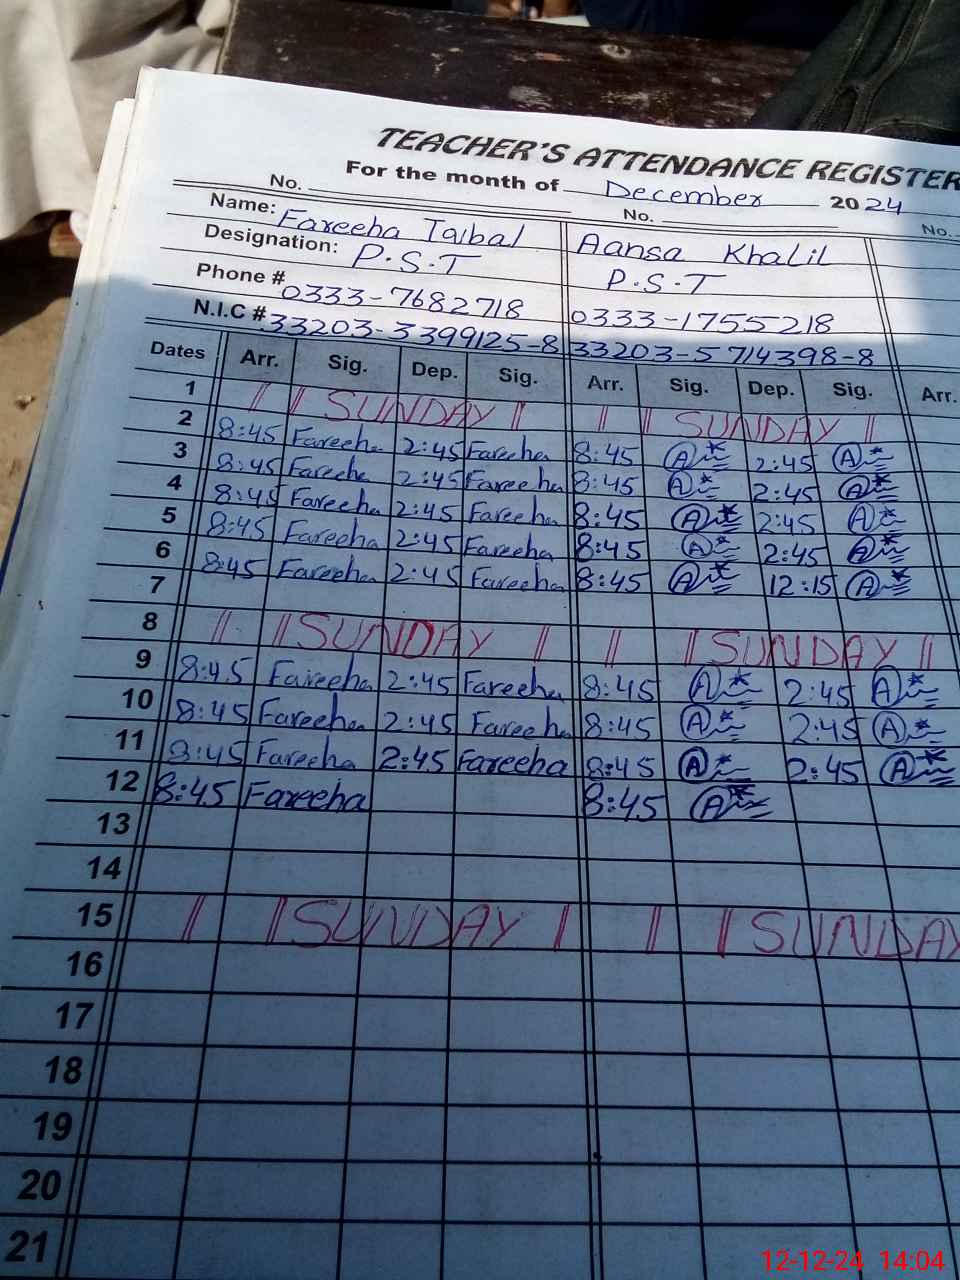 TEACHER'S ATTENDANCE REGISTER
For the month of December 2024
No. No. No.
Name: Fareeha Iqbal Aansa Khalil
Designation: P.S.T P.S.T
Phone # 0333-7682718 0333-1755218
N.I.C # 33203-3399125-8 33203-5714398-8
Dates Arr. Sig. Dep. Sig. Arr. Sig. Dep. Sig. Arr.
1 SUNDAY SUNDAY
2 8:45 Fareeha 2:45 Fareeha 8:45 A 2:45 A
3 8:45 Fareeha 2:45 Fareeha 8:45 A 2:45 A
4 8:45 Fareeha 2:45 Fareeha 8:45 A 2:45 A
5 8:45 Fareeha 2:45 Fareeha 8:45 A 2:45 A
6 8:45 Fareeha 2:45 Fareeha 8:45 A 12:15 A
7
8 SUNDAY SUNDAY
9 8:45 Fareeha 2:45 Fareeha 8:45 A 2:45 A
10 8:45 Fareeha 2:45 Fareeha 8:45 A 2:45 A
11 8:45 Fareeha 2:45 Fareeha 8:45 A 2:45 A
12 8:45 Fareeha 8:45 A
13
14
15 SUNDAY SUNDAY
16
17
18
19
20
21
12-12-24 14:04